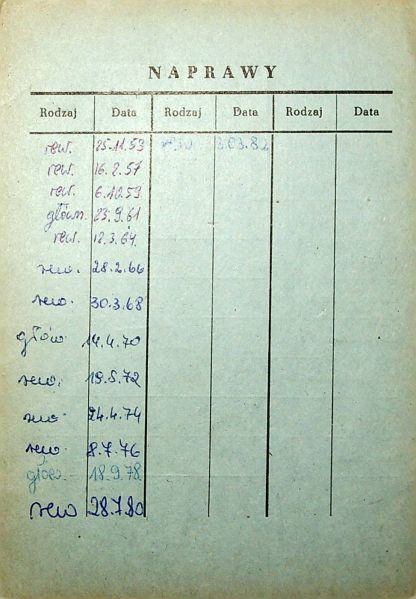 NAPRAWY
Rodzaj Data Rodzaj Data Rodzaj Data
rew. 25.11.53 rew 3.03.82
rew. 16.2.57
rew. 6.10.59
główn. 23.9.61
rew. 12.3.64.
rew. 28.2.66
rew. 30.3.68
głów. 14.4.70
rew. 19.5.72
rew. 24.4.74
rew. 8.7.76
głów. 18.9.78
rew 28.7.80